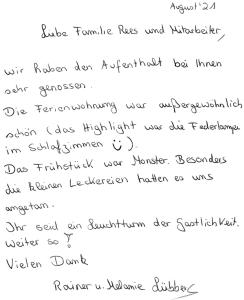 August '21
Liebe Familie Rees und Mitarbeiter,
wir haben den Aufenthalt bei Ihnen
sehr genossen.
Die Ferienwohnung war außergewöhnlich
schön (das Highlight war die Federlampe
im Schlafzimmer ☺).
Das Frühstück war Monster. Besonders
die kleinen Leckereien hatten es uns
angetan.
Ihr seid ein Leuchtturm der Gastlichkeit.
Weiter so!
Vielen Dank
Rainer u. Melanie Lübbers